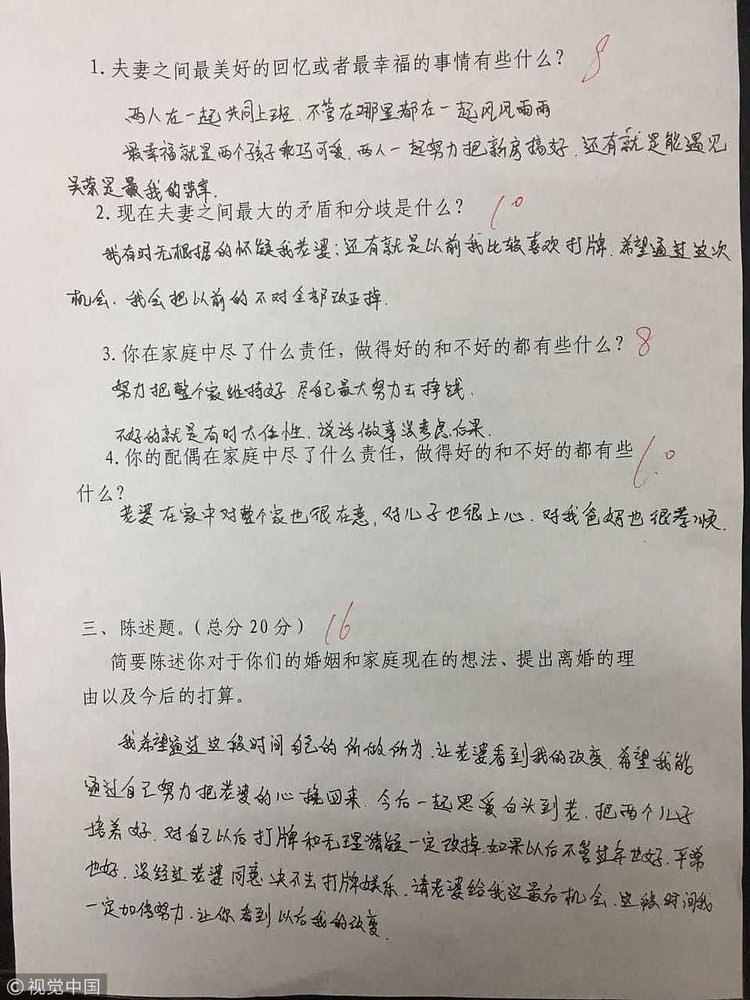 1. 夫妻之间最美好的回忆或者最幸福的事情有些什么？ 8
两人在一起共同上班，不管在哪里都在一起风风雨雨
最幸福就是两个孩子乖巧可爱，两人一起努力把新房搞好，还有就是能遇见
吴荣是最我的荣幸.
2. 现在夫妻之间最大的矛盾和分歧是什么？ 10
我有时无根据的怀疑我老婆；还有就是以前我比较喜欢打牌，希望通过这次
机会、我会把以前的不对全部改正掉.
3. 你在家庭中尽了什么责任，做得好的和不好的都有些什么？ 8
努力把整个家维持好，尽自己最大努力去挣钱.
不好的就是有时太任性，说话做事没考虑后果.
4. 你的配偶在家庭中尽了什么责任，做得好的和不好的都有些 10
什么？
老婆在家中对整个家也很在意，对儿子也很上心，对我爸妈也很孝顺.
三、陈述题。（总分20分） 16
简要陈述你对于你们的婚姻和家庭现在的想法、提出离婚的理
由以及今后的打算。
我希望通过这段时间自己的所做所为，让老婆看到我的改变，希望我能
通过自己努力把老婆的心挽回来，今后一起恩爱白头到老，把两个儿子
培养好，对自己以后打牌和无理猜疑一定改掉，如果以后不管过年也好，平常
也好，没经过老婆同意决不去打牌娱乐，请老婆给我这最后机会，这段时间我
一定加倍努力，让你看到以后我的改变.
©视觉中国